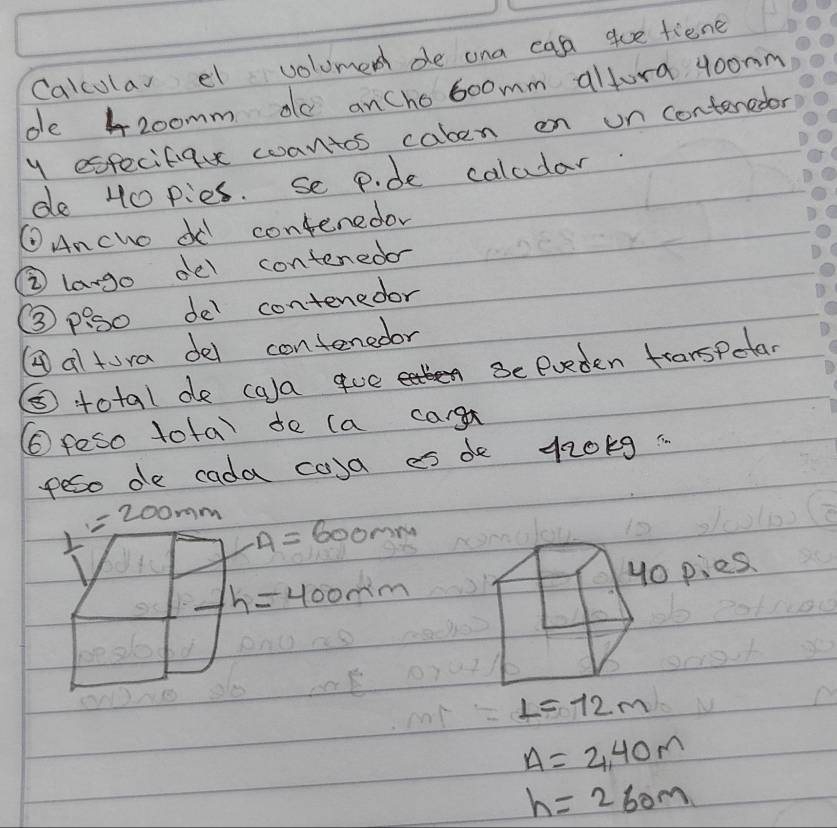 Calcular el volumen de una caja que tiene
de L 200mm de ancho 600mm altura 400mm
y especifique cuantos caben en un contenedor
de 40 pies. se pide calcular.
① Ancho del contenedor
② largo del contenedor
③ piso del contenedor
④ altura del contenedor
⑤ total de caja que se pueden transpotar
⑥ peso total de la carga
peso de cada caja es de 420kg
L = 200mm
A = 600mm
h = 400mm
40 pies
L = 12m
A = 2,40m
h = 2 60m